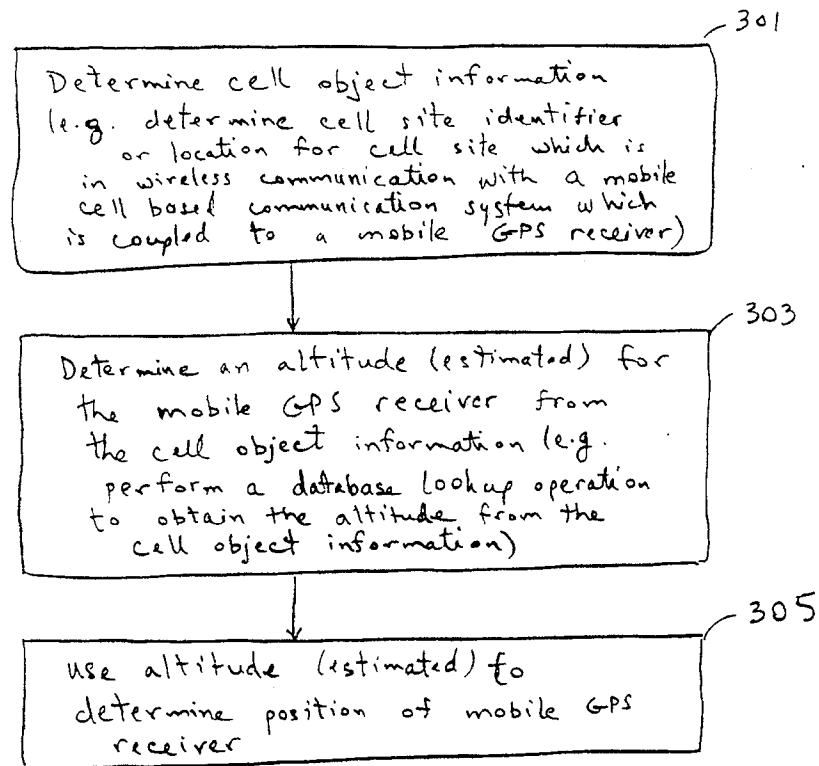 301
Determine cell object information
(e.g. determine cell site identifier
or location for cell site which is
in wireless communication with a mobile
cell based communication system which
is coupled to a mobile GPS receiver)
303
Determine an altitude (estimated) for
the mobile GPS receiver from
the cell object information (e.g.
perform a database lookup operation
to obtain the altitude from the
cell object information)
305
use altitude (estimated) to
determine position of mobile GPS
receiver